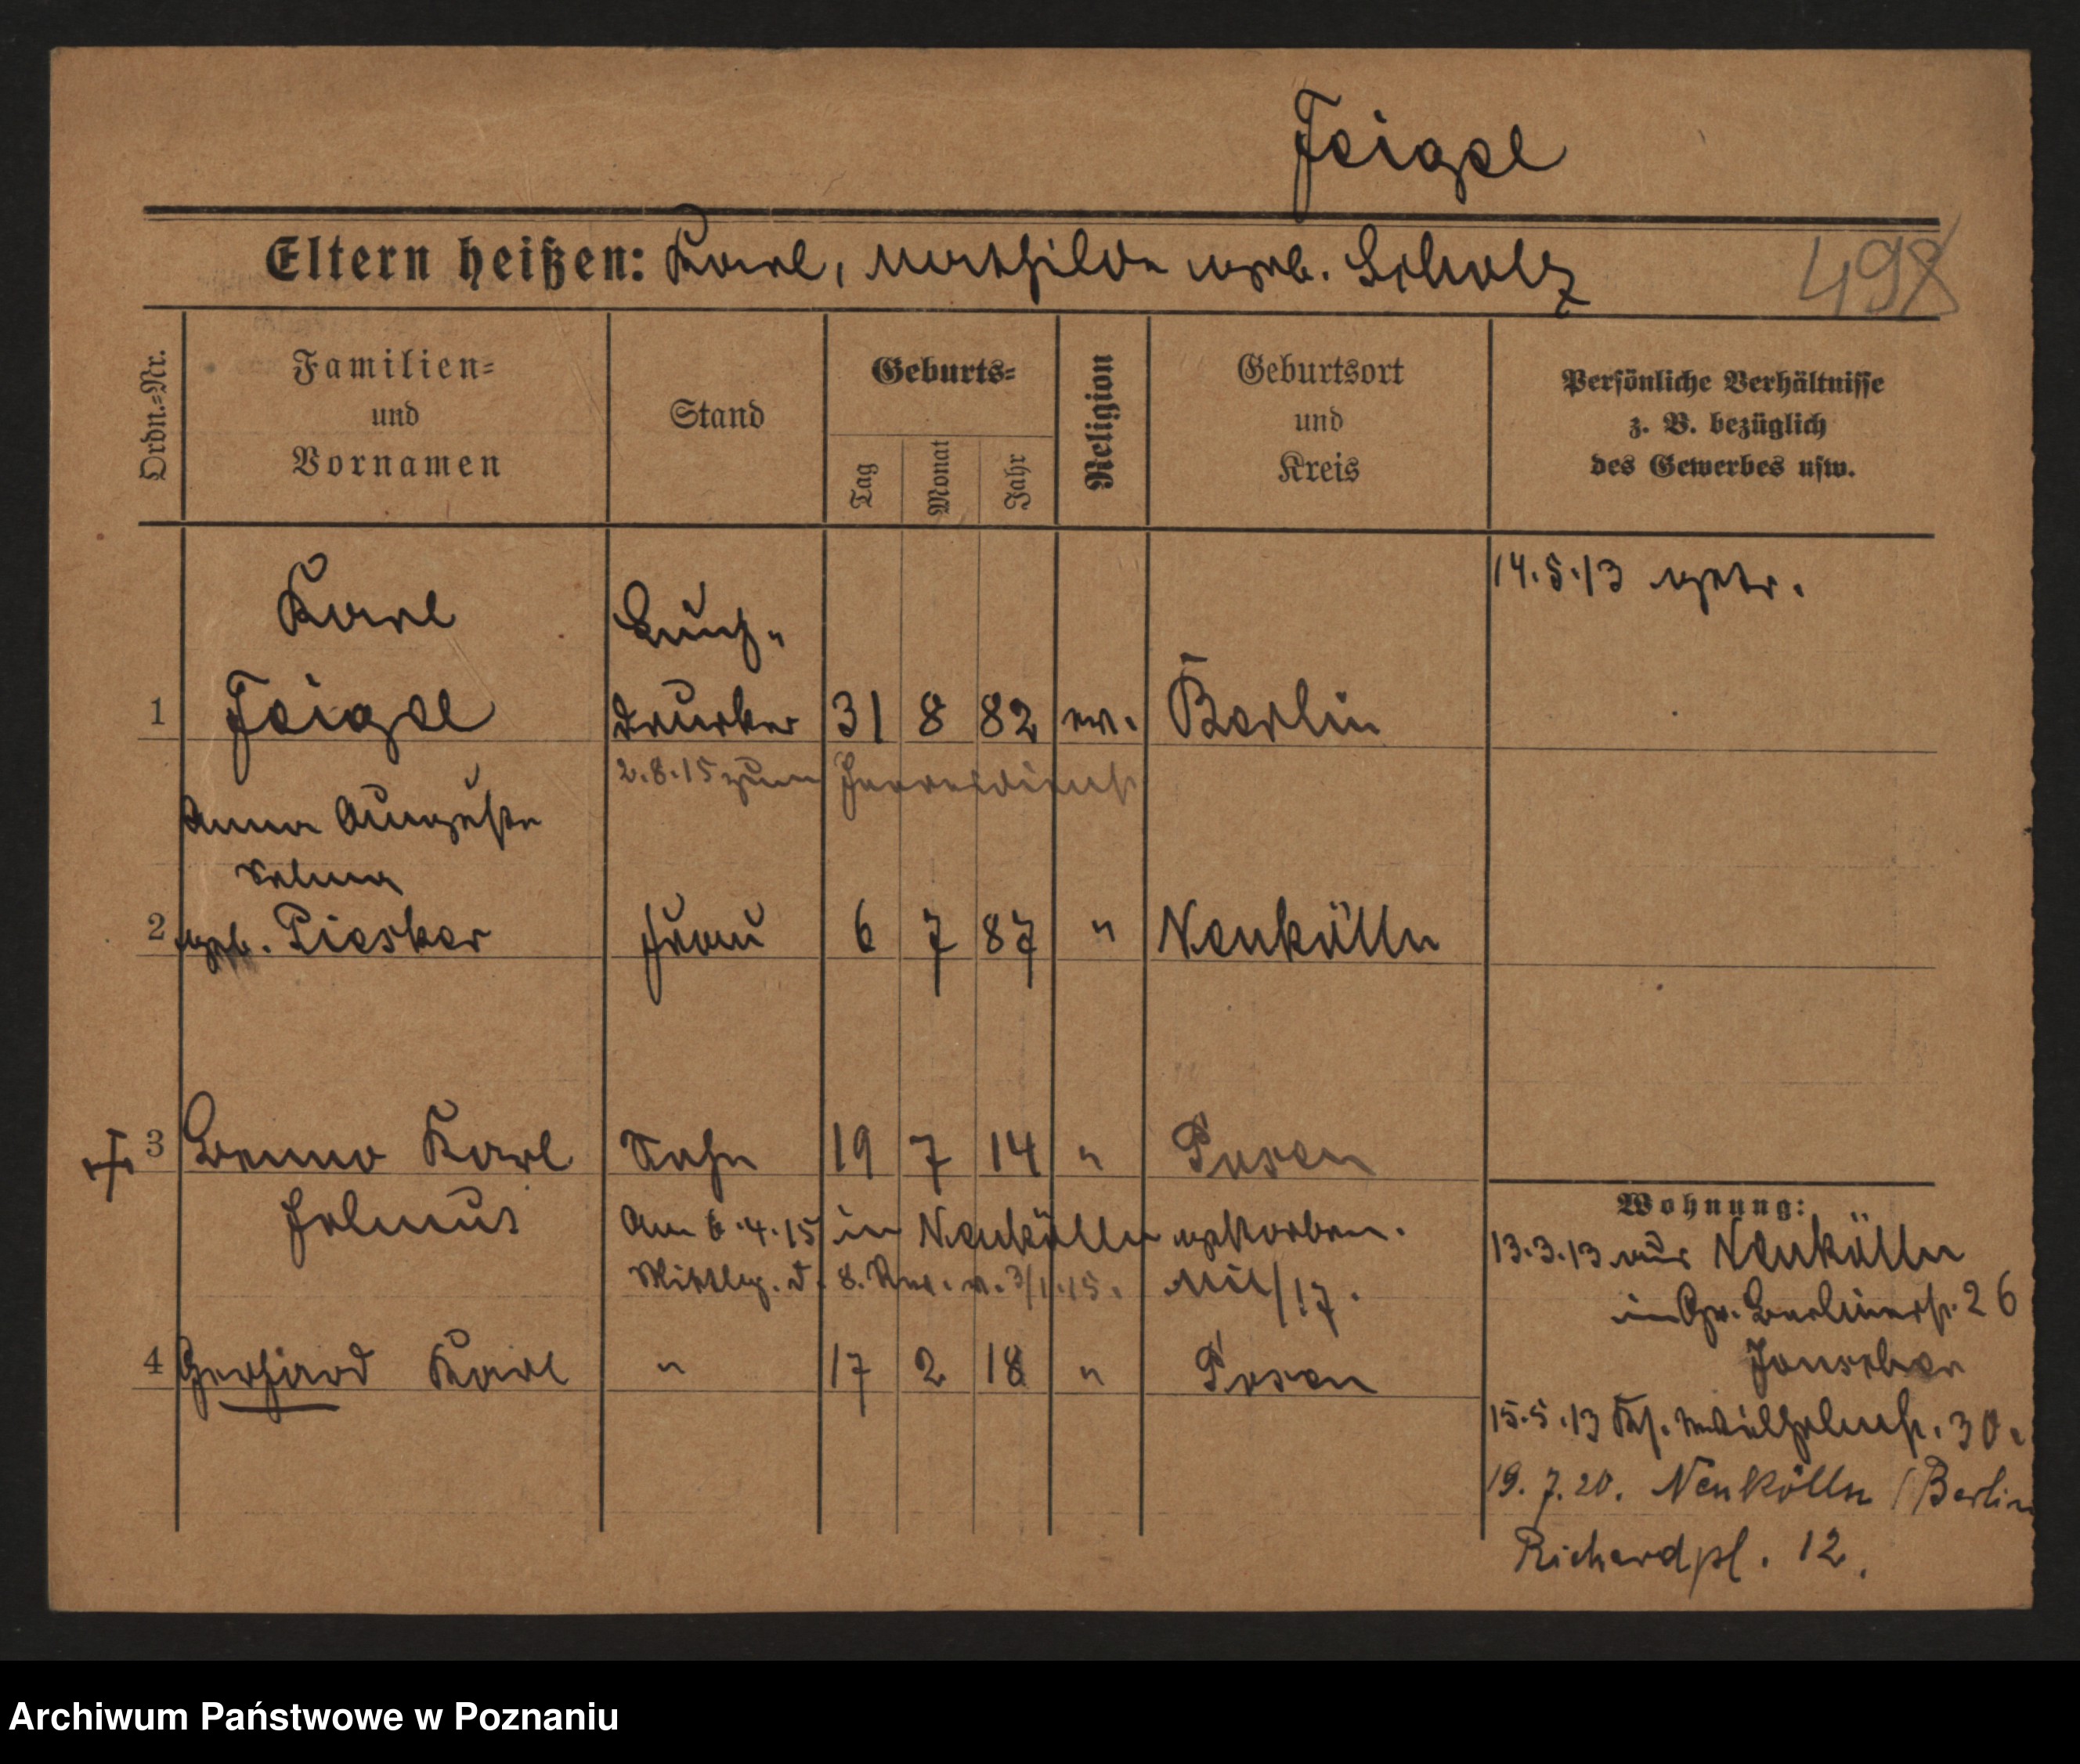 Feigel
Eltern heißen: Karl, Mathilde geb. Scholz
498
Ordn.=Nr.
Familien=
und
Vornamen
Stand
Geburts=
Tag
Monat
Jahr
Religion
Geburtsort
und
Kreis
Persönliche Verhältnisse
z. B. bezüglich
des Gewerbes usw.
14.5.13 getr.
Karl
Buch"
1 Feigel drucker 31 8 82 ev. Berlin
2.8.15 zum Heeresdienst
Anna Auguste
Selma
2 geb. Piesker Frau 6 7 87 " Neukölln
3 Benno Karl Sohn 19 7 14 " Posen
Helmut
Am 6.4.15 in Neukölln gestorben.
Mittlg. d. 8. Rev. v. 3/1.15. Mil/17.
4 Gerhard Karl " 17 2 18 " Posen
Wohnung:
13.3.13 aus Neukölln
in Gr. Berlinerst. 26
15.5.13 Ks. Wilhelmst. 30
19.7.20. Neukölln / Berlin
Richardpl. 12.
Archiwum Państwowe w Poznaniu